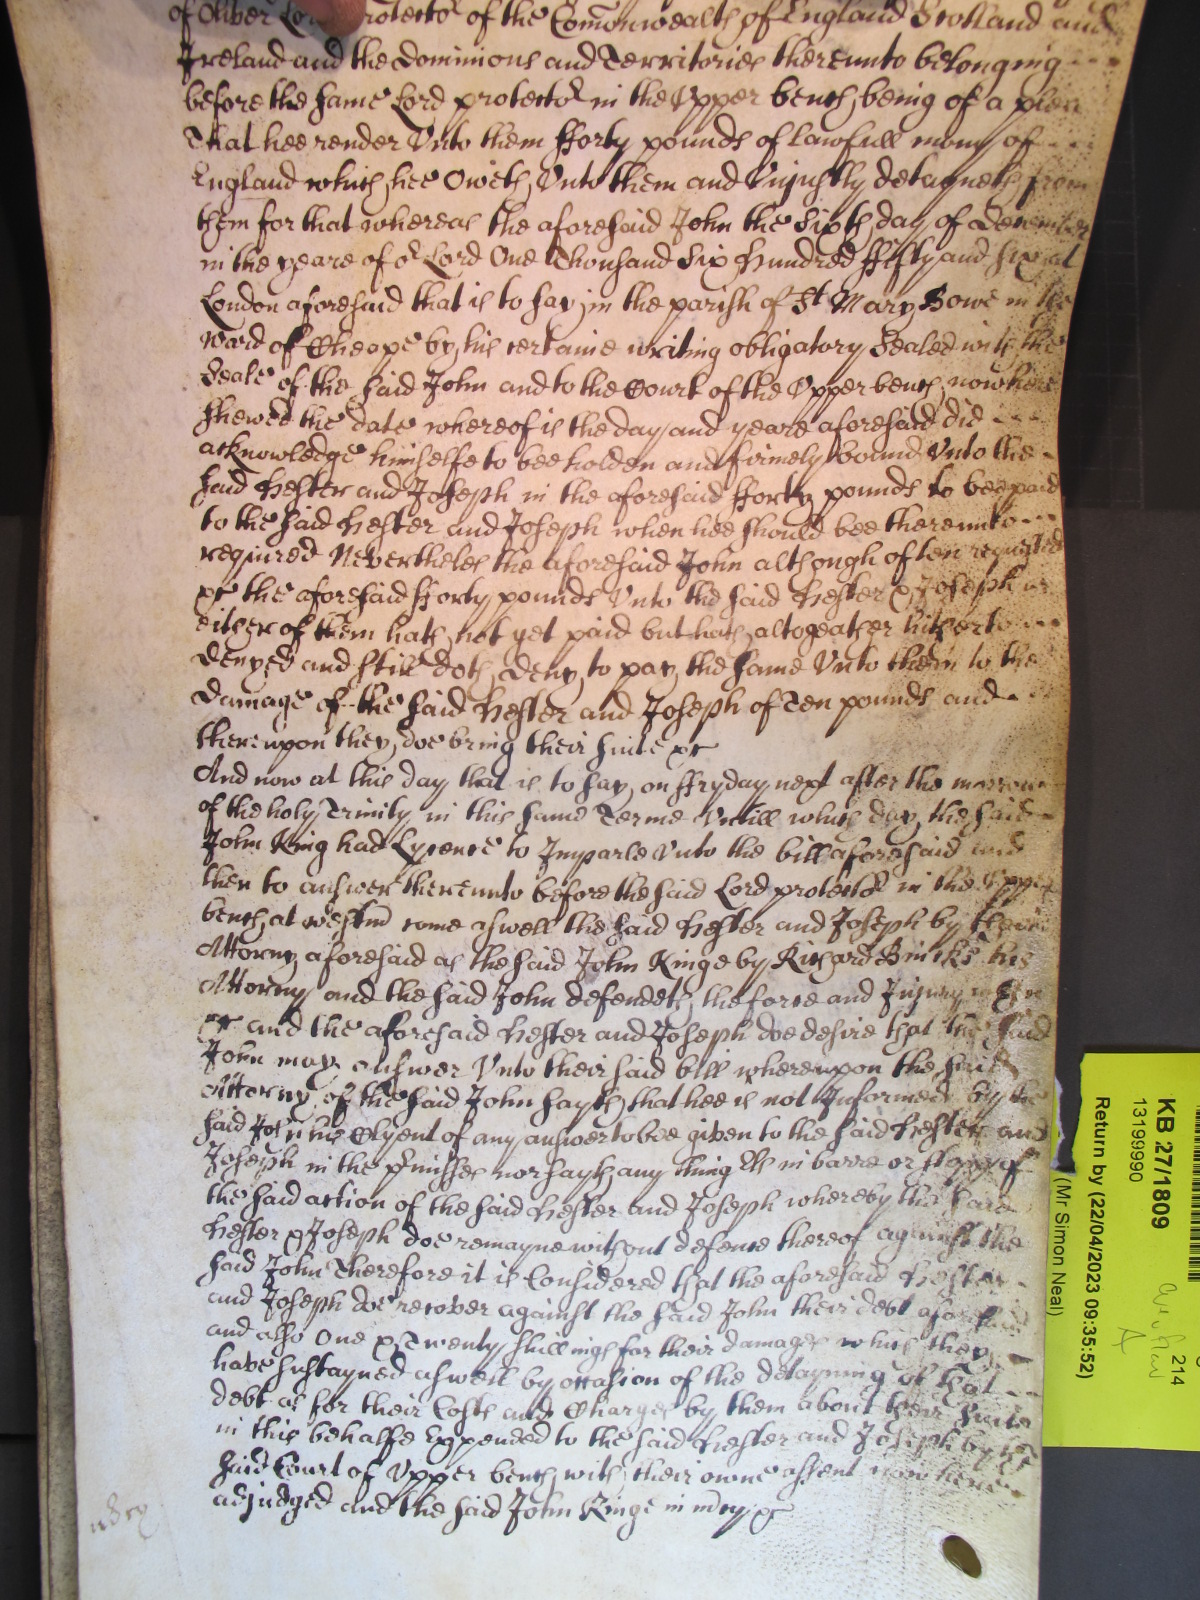 of Oliver Lord Protector of the Comonwealth of England Scotland and
Ireland and the dominions and Territories thereunto belonging
before the same Lord protector in the Upper bench, being of a plea
That hee render Unto them fforty pounds of lawfull mony of
England which hee Oweth Unto them and Unjustly detayneth from
them for that whereas the aforesaid John the Sixth day of December
in the yeare of or Lord One Thousand Six Hundred ffifty and six at
London aforesaid that is to say in the parish of St Mary Bowe in the
ward of Cheape by his certaine writing obligatory Sealed with the
Seale of the said John and to the Court of the Upper bench now here
shewed the date whereof is the day and yeare aforesaid did
acknowledge himselfe to bee holden and firmely bound Unto the
said Hester and Joseph in the aforesaid fforty pounds to bee paid
to the said Hester and Joseph when hee should bee thereunto
required Nevertheles the aforesaid John although often requested
&c the aforesaid fforty pounds Unto the said Hester & Joseph or
either of them hath not yet paid but hath altogeather hitherto
denyed and still doth deny to pay the same Unto them to the
damage of the said Hester and Joseph of Ten pounds and
thereupon they doe bring their suite &c
And now at this day that is to say on ffryday next after the morrow
of the holy Trinity in this same Terme Untill which day the said
John King had Lycence to Imparle Unto the bill aforesaid and
then to answer thereunto before the said Lord protector in the Upper
bench at Westmr come aswell the said Hester and Joseph by their
Attorny aforesaid as the said John Kinge by Richard Bincks his
Attorny and the said John defendeth the force and Injury when
&c and the aforesaid Hester and Joseph doe desire that the said
John may answer Unto their said bill whereupon the said
Attorny of the said John sayth that hee is not Informed by the
said John his Clyent of any answer to bee given to the said Hester and
Joseph in the prmisses nor sayth any thing Els in barre or stopp of
the said action of the said Hester and Joseph whereby the said
Hester & Joseph doe remayne without defence thereof against the
said John Therefore it is Considered that the aforesaid Hester
and Joseph doe recover against the said John their debt aforesaid
and also One & Twenty shillings for their damages which they
have sustayned aswell by occasion of the detayning of that
debt as for their Costs and Charges by them about their suite
in this behalfe Expended to the said Hester and Joseph by the
said Court of Upper bench with their owne assent now here
adjudged and the said John Kinge in mcy &c
KB 27/1809
13199990
Return by (22/04/2023 09:35:52)
(Mr Simon Neal)
214
A